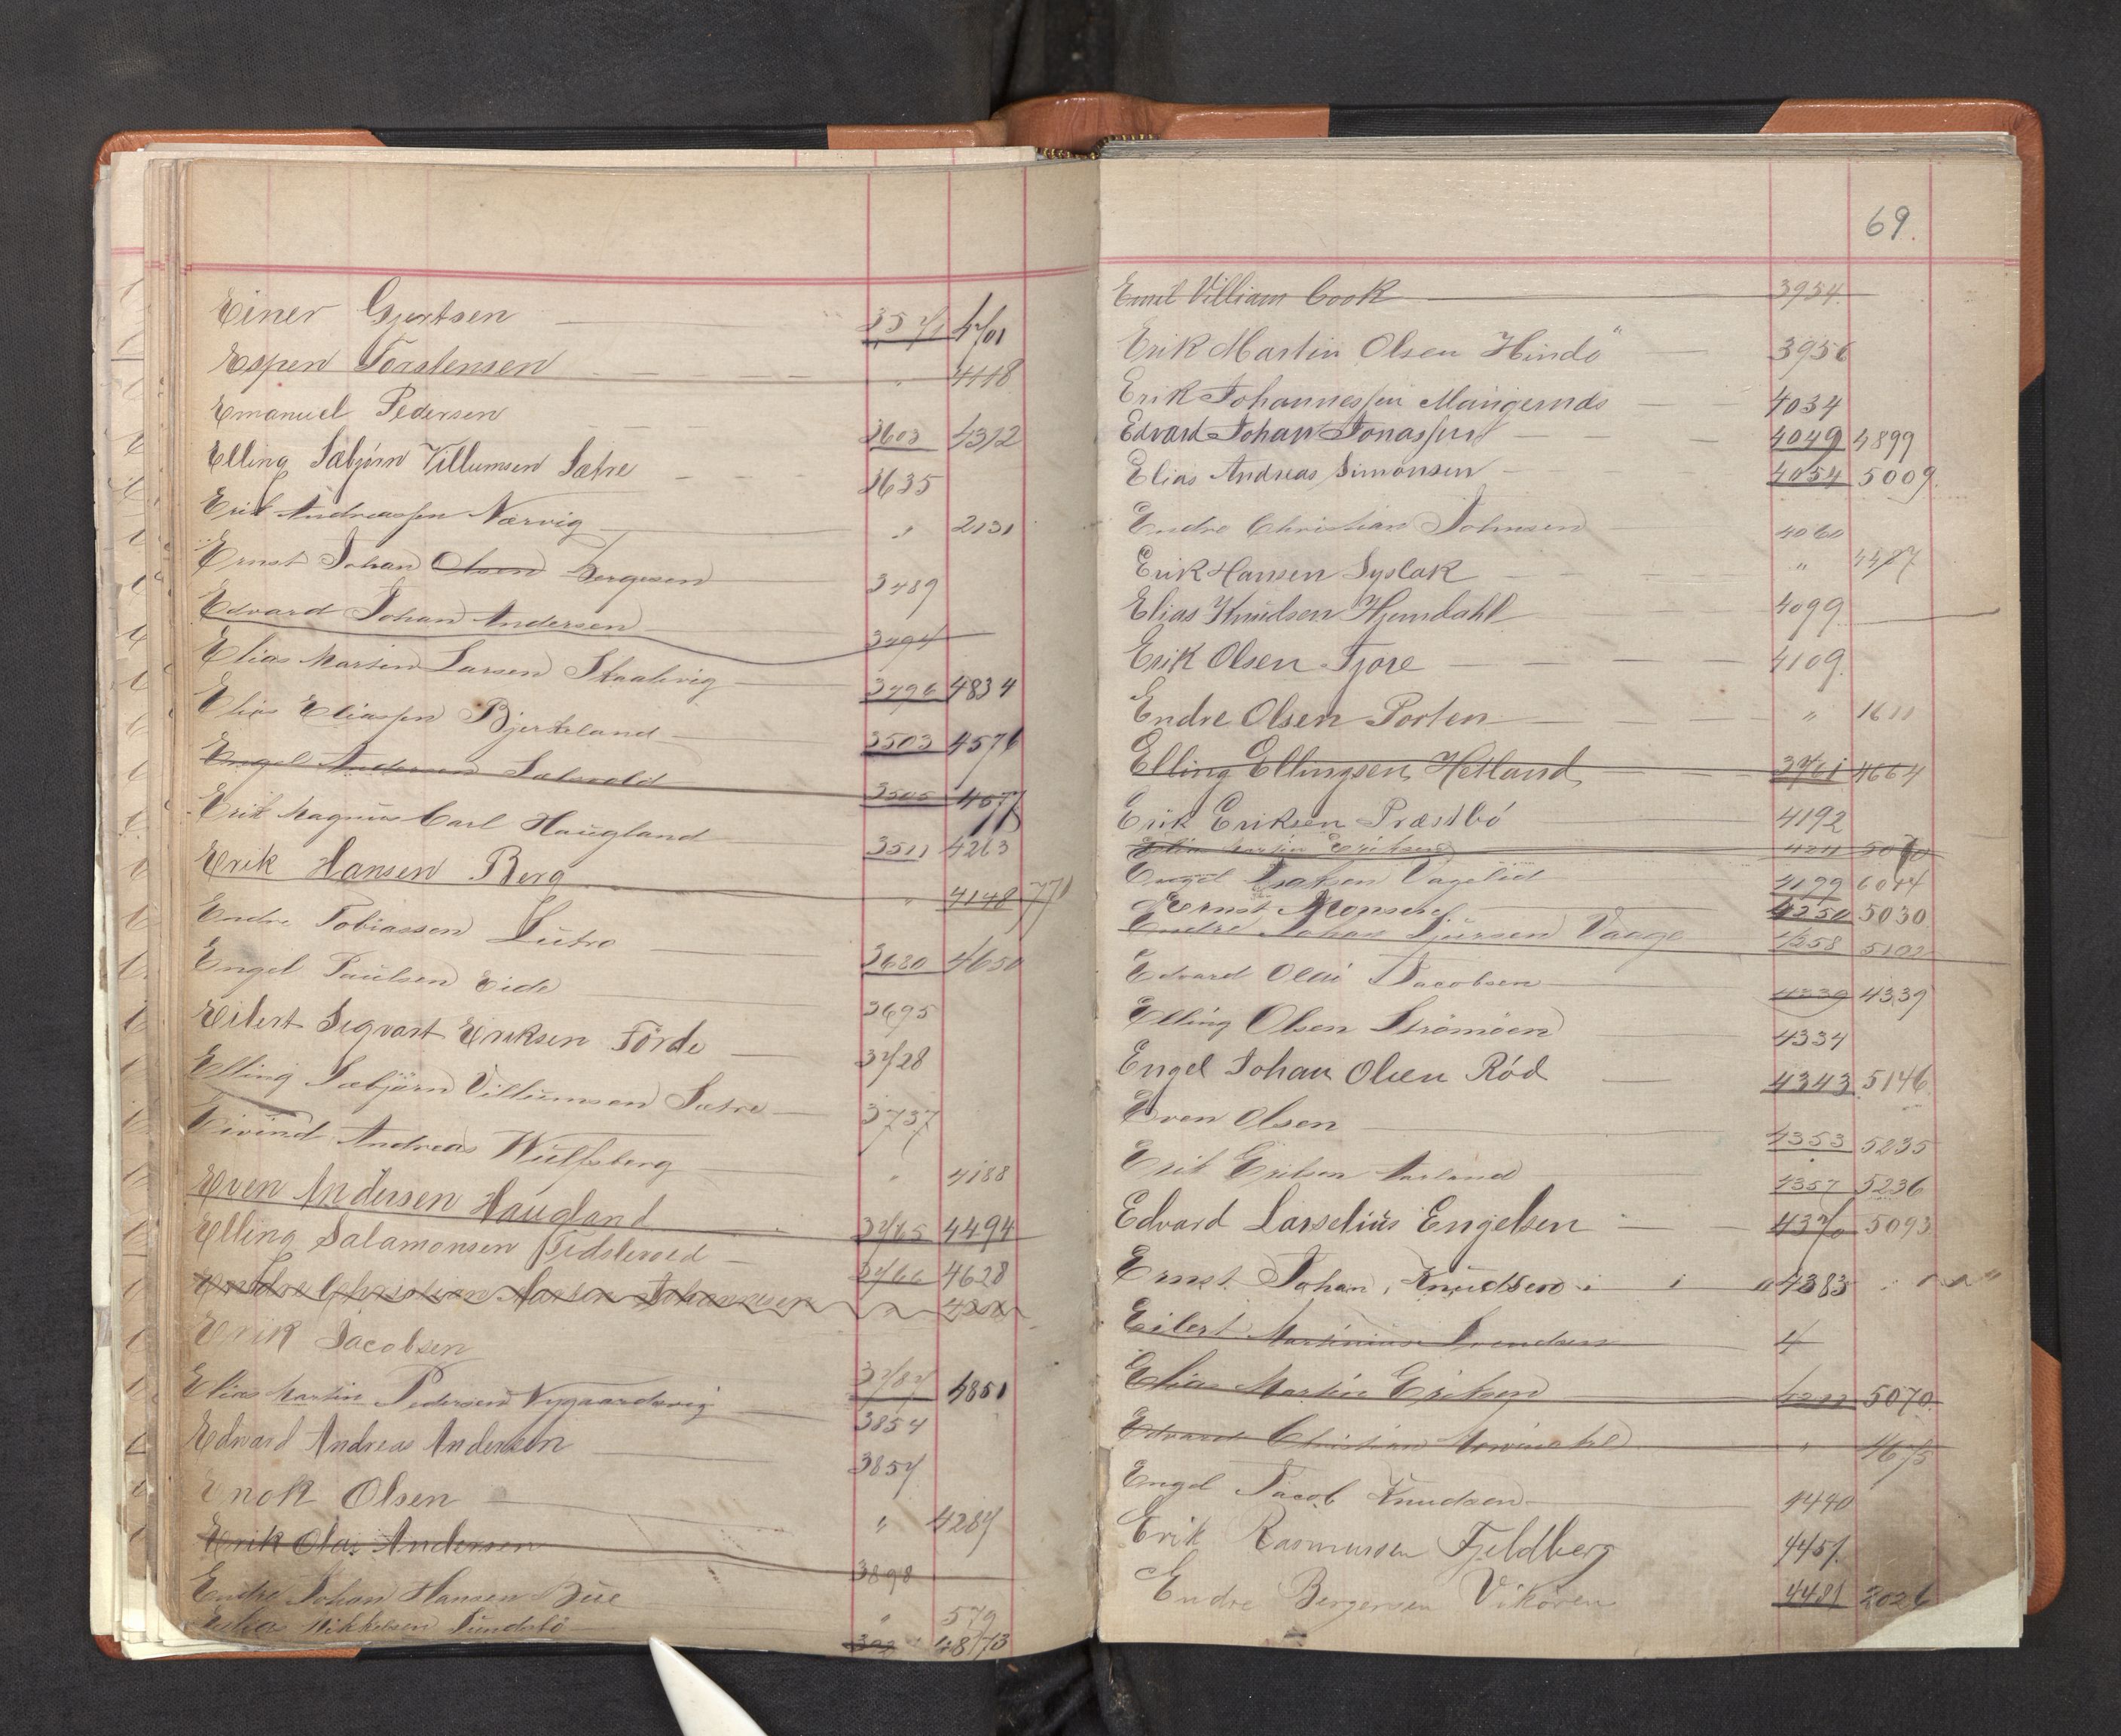 Einer Gjertsen 3571 4701
Espen Torstensen " 4118
Emanuel Pedersen 3603 4312
Elling Sæbjörn Villumsen Sætre 3635
Erik Andreassen Nærvig " 2131
Ernst Johan Olsen Børgesen 3489
Edvard Johan Andersen 3494
Elias Martin Larsen Skaalvig 3496 4834
Elias Eliassen Bjerkeland 3503 4576
Engel Andersen 3505 4577
Erik Magnus Carl Haugland 3511 4263
Erik Hansen Berg " 4148 771
Endre Tobiassen Lutro 3680 4650
Engel Paulsen Eide 3695
Eilert Sigvart Eriksen Förde 3728
Elling Sæbjörn Villumsen Sætre 3737
Eivind Andreas Wulfsberg " 4188
Even Andersen Haugland 3765 4494
Elling Salamonsen 3766 4628
Endre Christian Martin Johannesen "
Erik Jacobsen 3787 4851
Elias Martin Pedersen Nygaardsvig 3854
Edvard Andreas Andersen 3857
Enok Olsen " 4287
Erik Olai Andersen 3898
Endre Johan Hansen Bue " 579
Mikkelsen Sundsbö 4873
69.
Emil Villiam Cook 3954
Erik Martin Olsen Hindö 3956
Erik Johannessen 4034
Edvard Johan Jonassen 4049 4899
Elias Andreas Simonsen 4054 5009
Endre Christian Johnsen 4060
Erik Hansen Syslak " 4487
Elias Knudsen Hjemdahl 4099
Erik Olsen Tjore 4109
Endre Olsen Porten " 1611
Elling Ellingsen Hetland 3761 4664
Erik Eriksen Præstbö 4192
Elias Martin Eriksen 4211 5070
Engel Isaksen Vagelid 4199 6044
Ernst Monsen 4250 5030
Endre Johan Sjursen Vaage 4258 5102
Edvard Olai Jacobsen 4339 4339
Elling Olsen Strömöen 4334
Engel Johan Olsen Röd 4343 5146
Even Olsen 4353 5235
Erik Eriksen Aarland 4357 5236
Edvard Larselius Engelsen 4370 5093
Ernst Johan Knudsen " 4383
Eilert Martinius Svendsen 4
Elias Martin Eriksen 4211 5070
Edvard Christian " 4675
Engel Jacob Knudsen 4440
Erik Rasmussen Fjeldberg 4457
Endre Bergersen Vikören 4481 2026